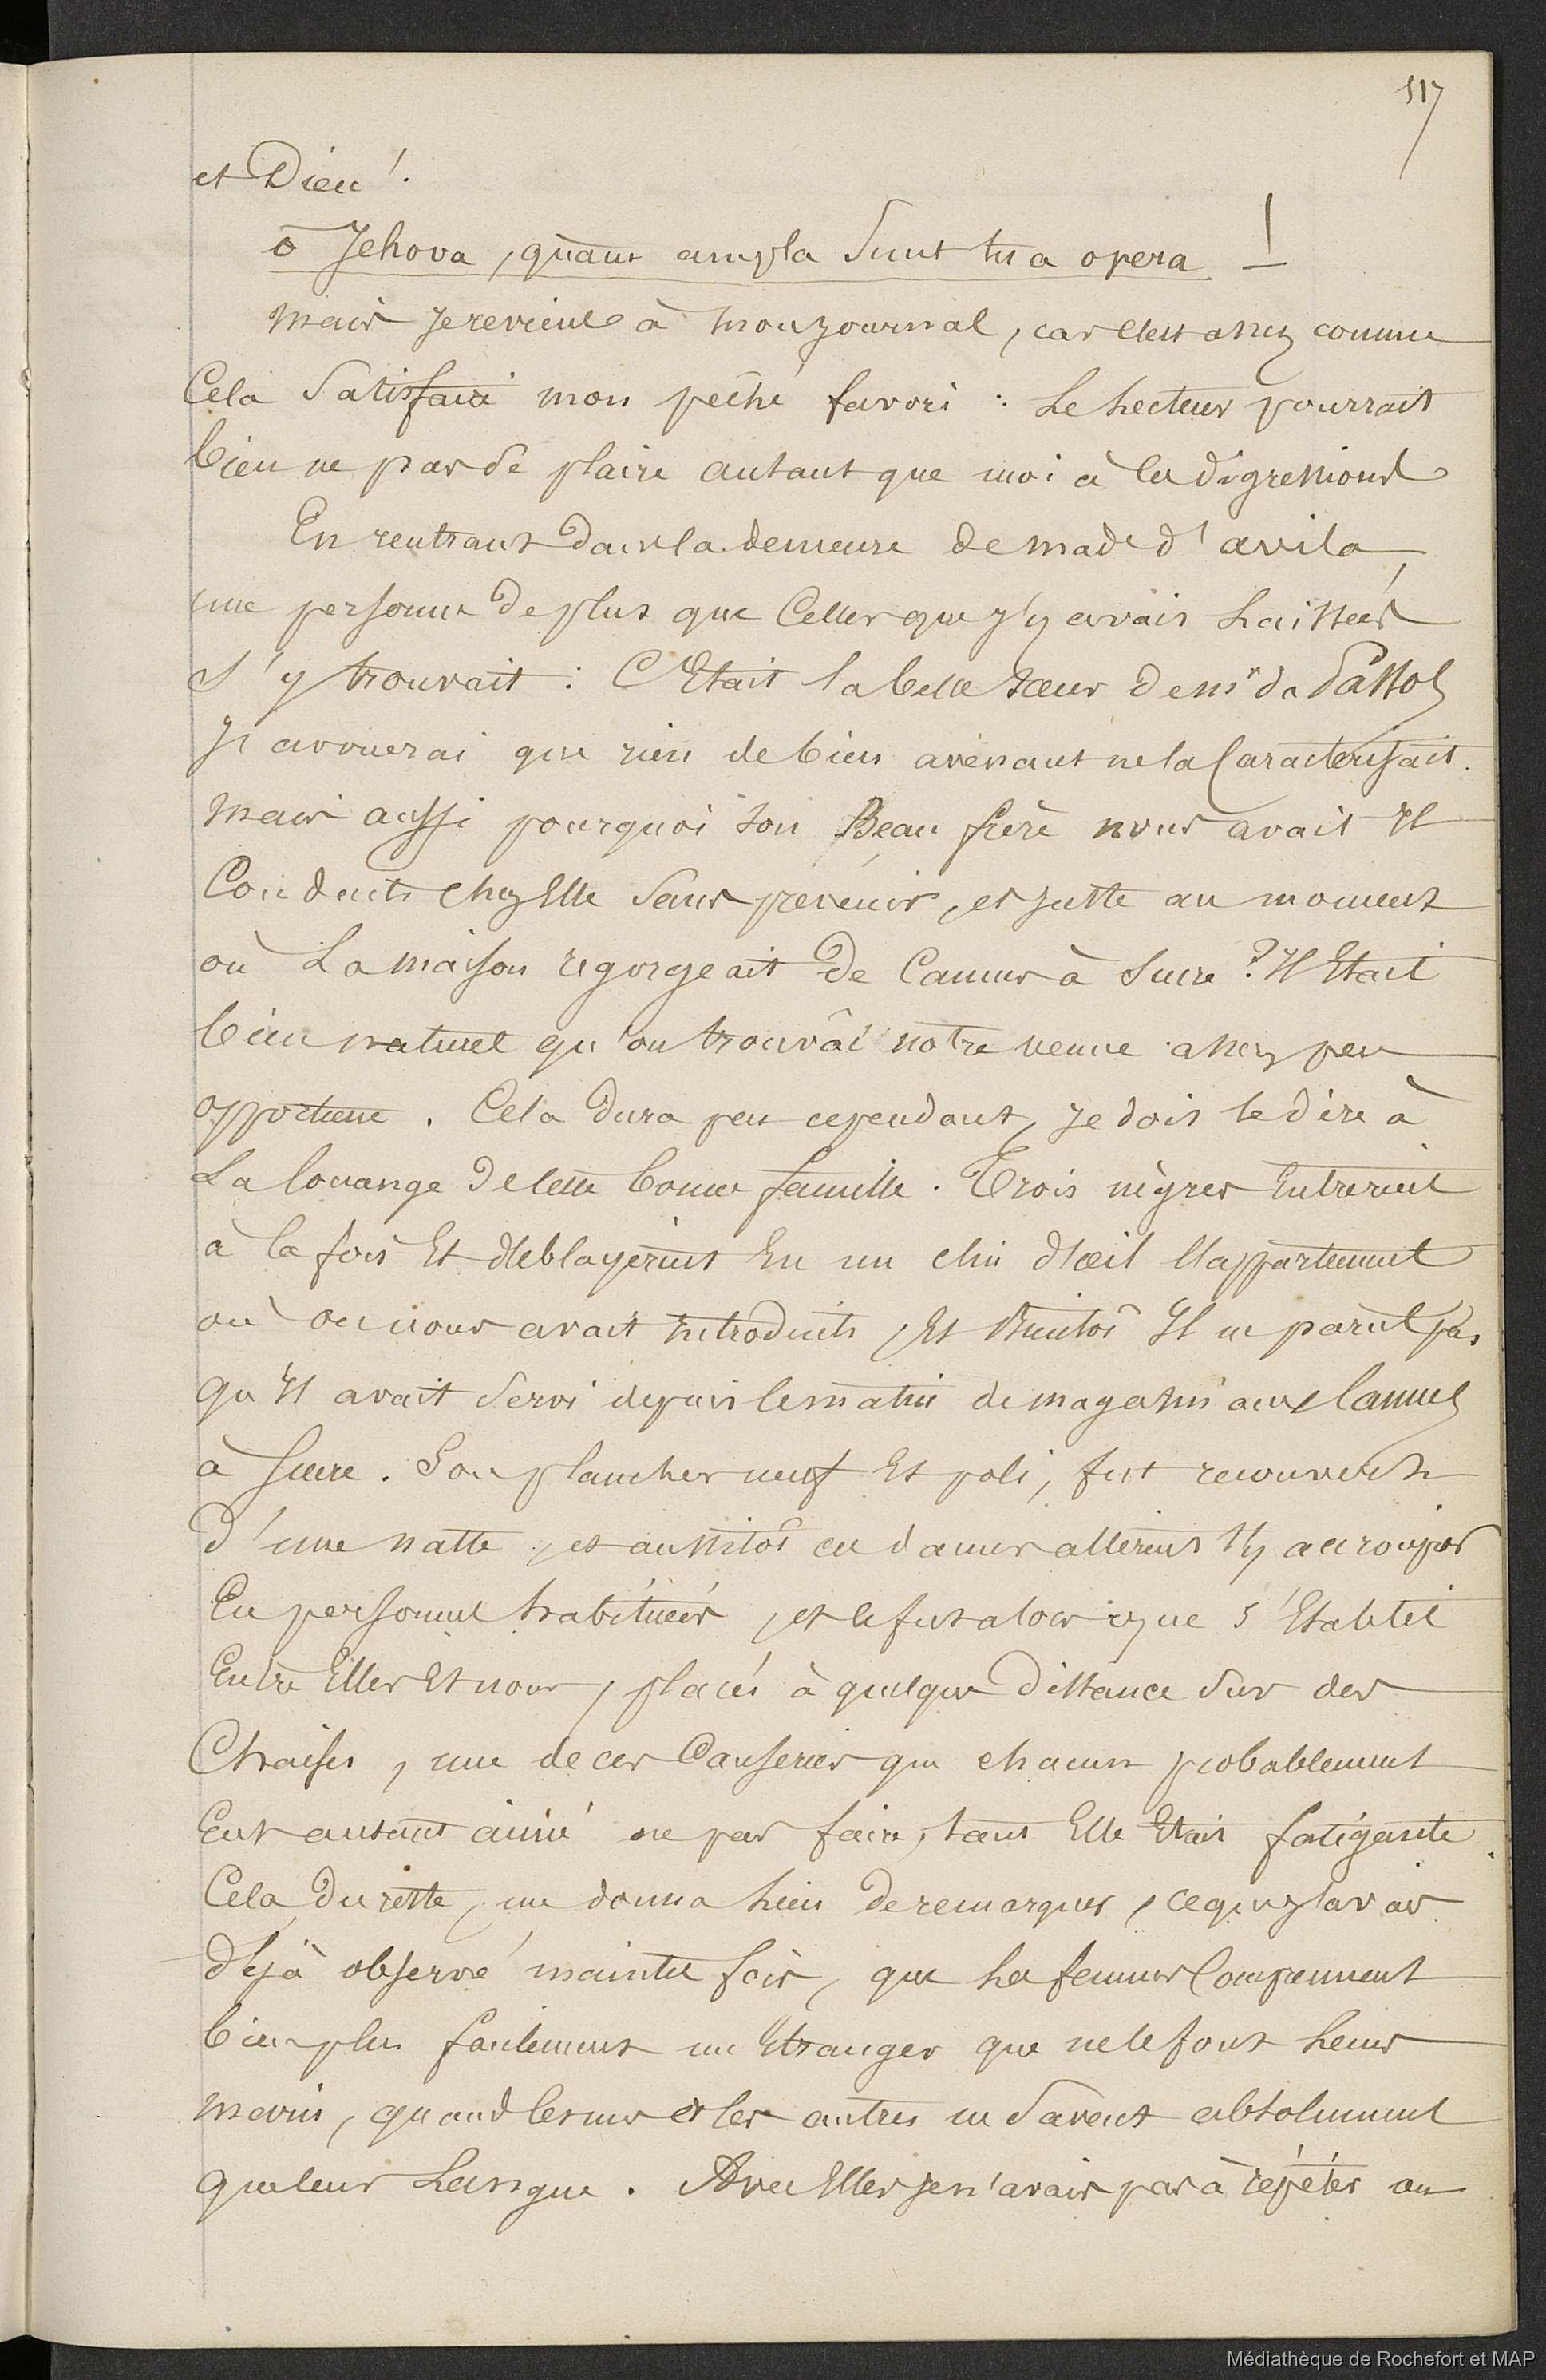 117
et Dieu !.
ô Jehova, quam ampla sunt tua opera !
Mais je reviens à mon journal, car c'est assez comme
Cela satisfaire mon péché favori : Le Lecteur pourrait
bien ne pas se plaire autant que moi à ces digressions
En rentrant dans la demeure de made d'avila,
une personne de plus que Celles que j'y avais Laissées
s'y trouvait : C'Etait la belle sœur de mr de Sassol
Je avouerai que rien de bien avénant ne la Caractérisait.
Mais aussi pourquoi son Beau frère nous avait Il
Conduits chez Elle sans prévenir, et juste au moment
où La maison regorgeait de Cannes à sucre ? Il Etait
bien naturel qu'on trouvât notre venue assez peu
opportune. Cela dura peu cependant, je dois le dire à
La louange de cette bonne famille. Trois nègres Entrerent
à la fois Et déblayèrent En un clin d'œil l'appartement
où on nous avait Introduits, Et bientôt Il ne parut pas
qu'Il avait servi depuis le matin de magasin aux Cannes
à sucre. Son plancher neuf Et poli, fut recouvert
d'une natte, et aussitôt ces dames allèrent s'y accroupir
En personnes habituées, et ce fut alors que s'Etablit
Entre Elles Et nous, placés à quelque distance sur des
Chaises, une de ces Causeries que chacun probablement
Eut autant aimé ne pas faire, tant Elle Etait fatigante.
Cela du reste, me donna Lieu de remarquer, ce que j'avais
déjà observé maintes fois, que Les femmes Comprennent
bien plus facilement un Etranger que ne le font Leurs
maris, quand les uns et les autres ne savent absolument
que leur Langue. Avec Elles je n'avais pas à répéter ou
Médiathèque de Rochefort et MAP